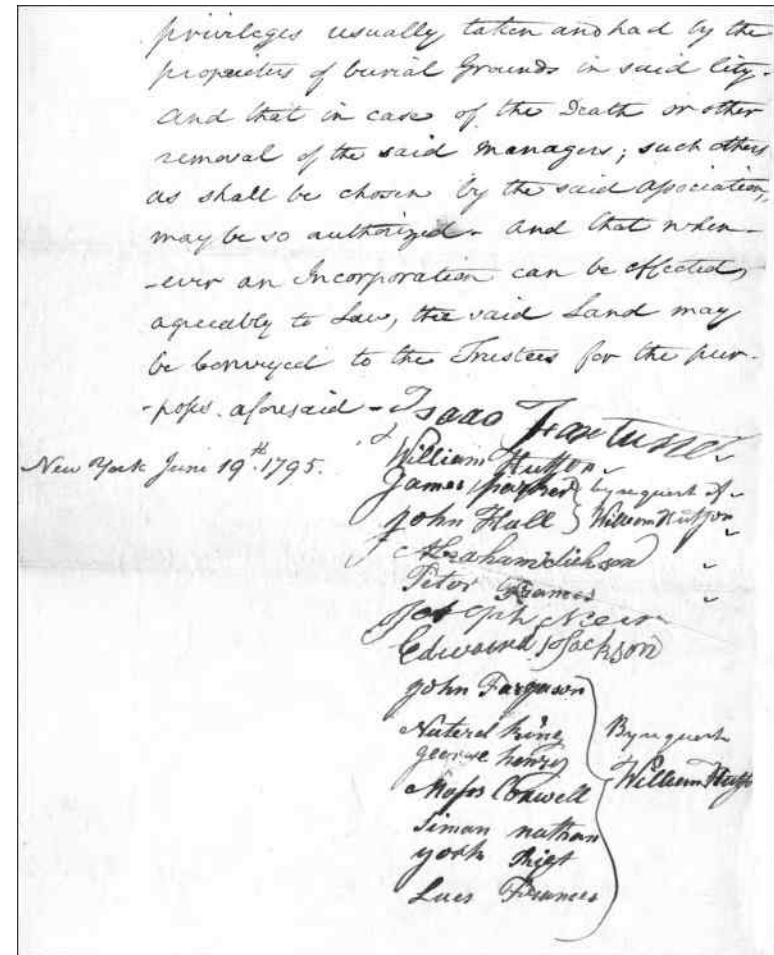 privileges usually taken and had by the
proprieters of burial Grounds in said City.
And that in case of the Death or other
removal of the said managers; such others
as shall be chosen by the said Association,
may be so authorized. And that when-
-ever an Incorporation can be effected,
agreeably to Law, the said Land may
be conveyed to the Trustees for the pur-
-poses aforesaid -
Isaac
New York June 19th. 1795.
William Hutson
James parker } by request of
John Hull } William Hutson
Abraham dickson
Peter Frances
Joseph
Edward Jackson
John Farguson
King
george henry
Moses
Siman nathan
york
Frances
By request
William